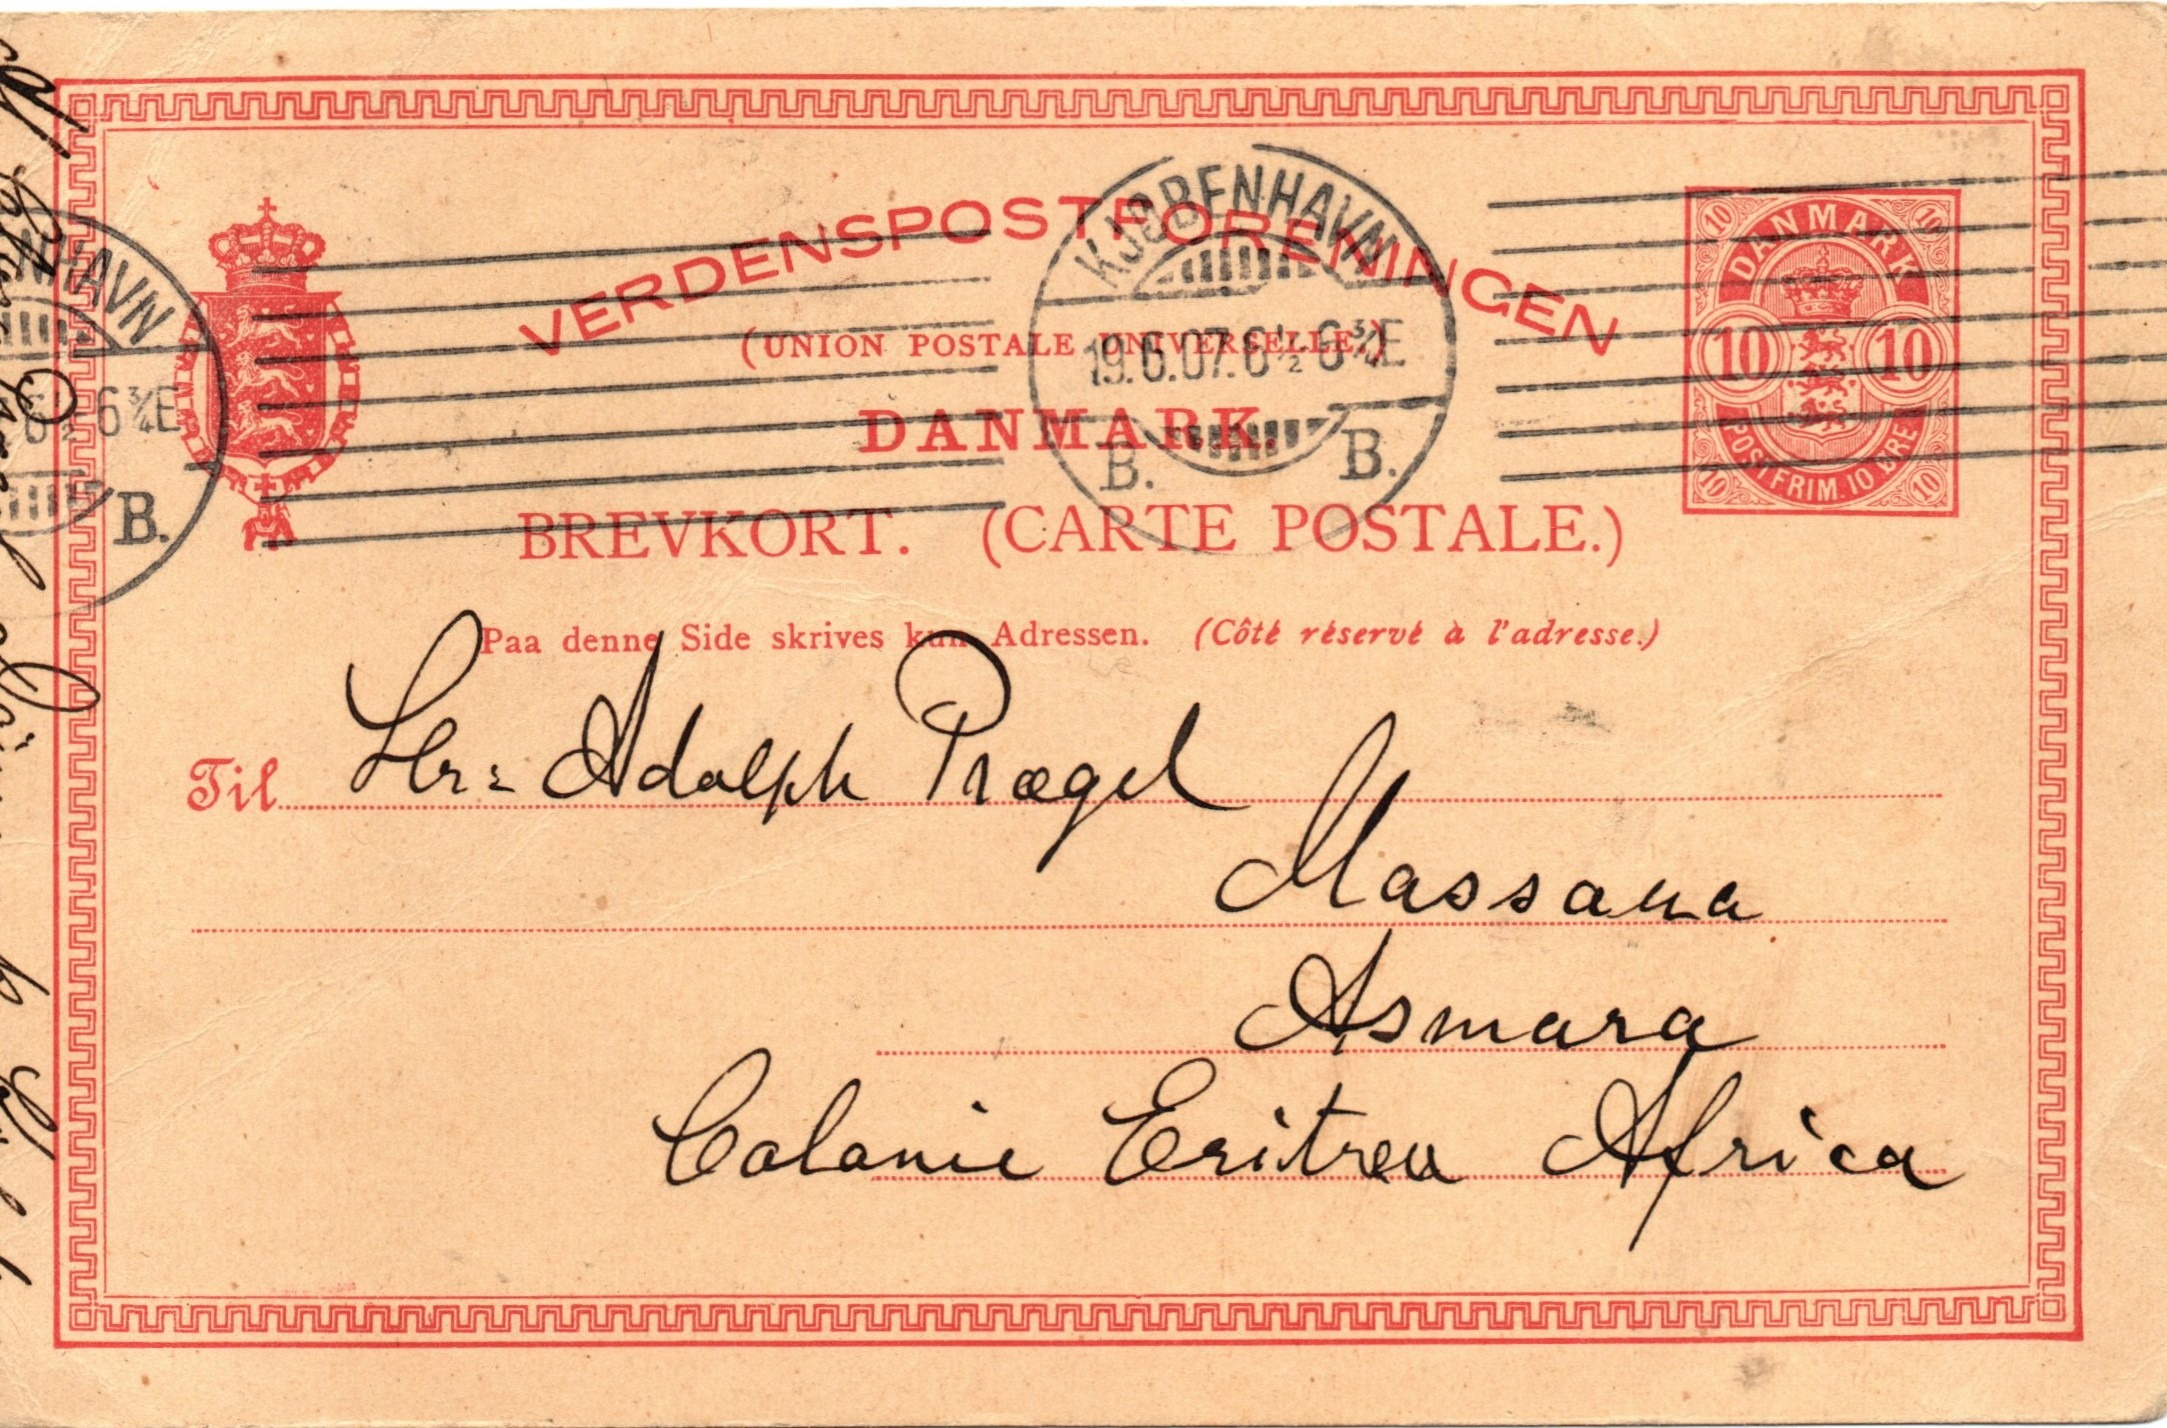 VERDENSPOSTFORENINGEN
(UNION POSTALE UNIVERSELLE.)
DANMARK.
BREVKORT. (CARTE POSTALE.)
Paa denne Side skrives kun Adressen. (Côté réservé à l'adresse.)
KJØBENHAVN
19.6.07. 6½-6¾E
B. B.
10 10
DANMARK
10 10
POSTFRIM. 10 ØRE
10 10
NHAVN
6½-6¾E
B.
Til Hr: Adolph Prægel
Massaua
Asmara
Colonie Eritrea Africa